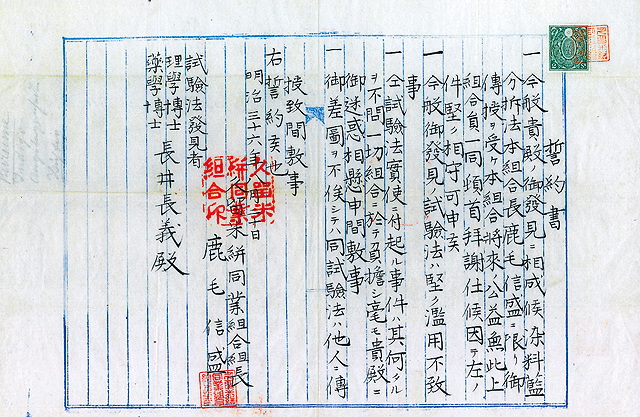 誓約書
一今般貴殿ノ御發見ニ相成候染料鑑
分析法本組合長鹿毛信盛ニ限リ御
傳授ヲ受ケ本組合將來ノ公益無此上
組合員一同頓首拜謝仕候因テ左ノ
件堅ク相守可申候
一今般御發見ノ試驗法ハ堅ク濫用不致
事
一仝試驗法實使ニ付起ル事件ハ其何タル
ヲ不問一切組合ニ於テ負擔シ毫モ貴殿ニ
御迷惑相懸申間敷事
一御差圖ヲ不俟シテハ同試驗法ハ他人ニ傳
授致間敷事
右誓約候也
明治三十六年八月 十日
久留米絣同業組合組長
鹿毛信盛
試驗法發見者
理學博士
藥學博士
長井長義殿